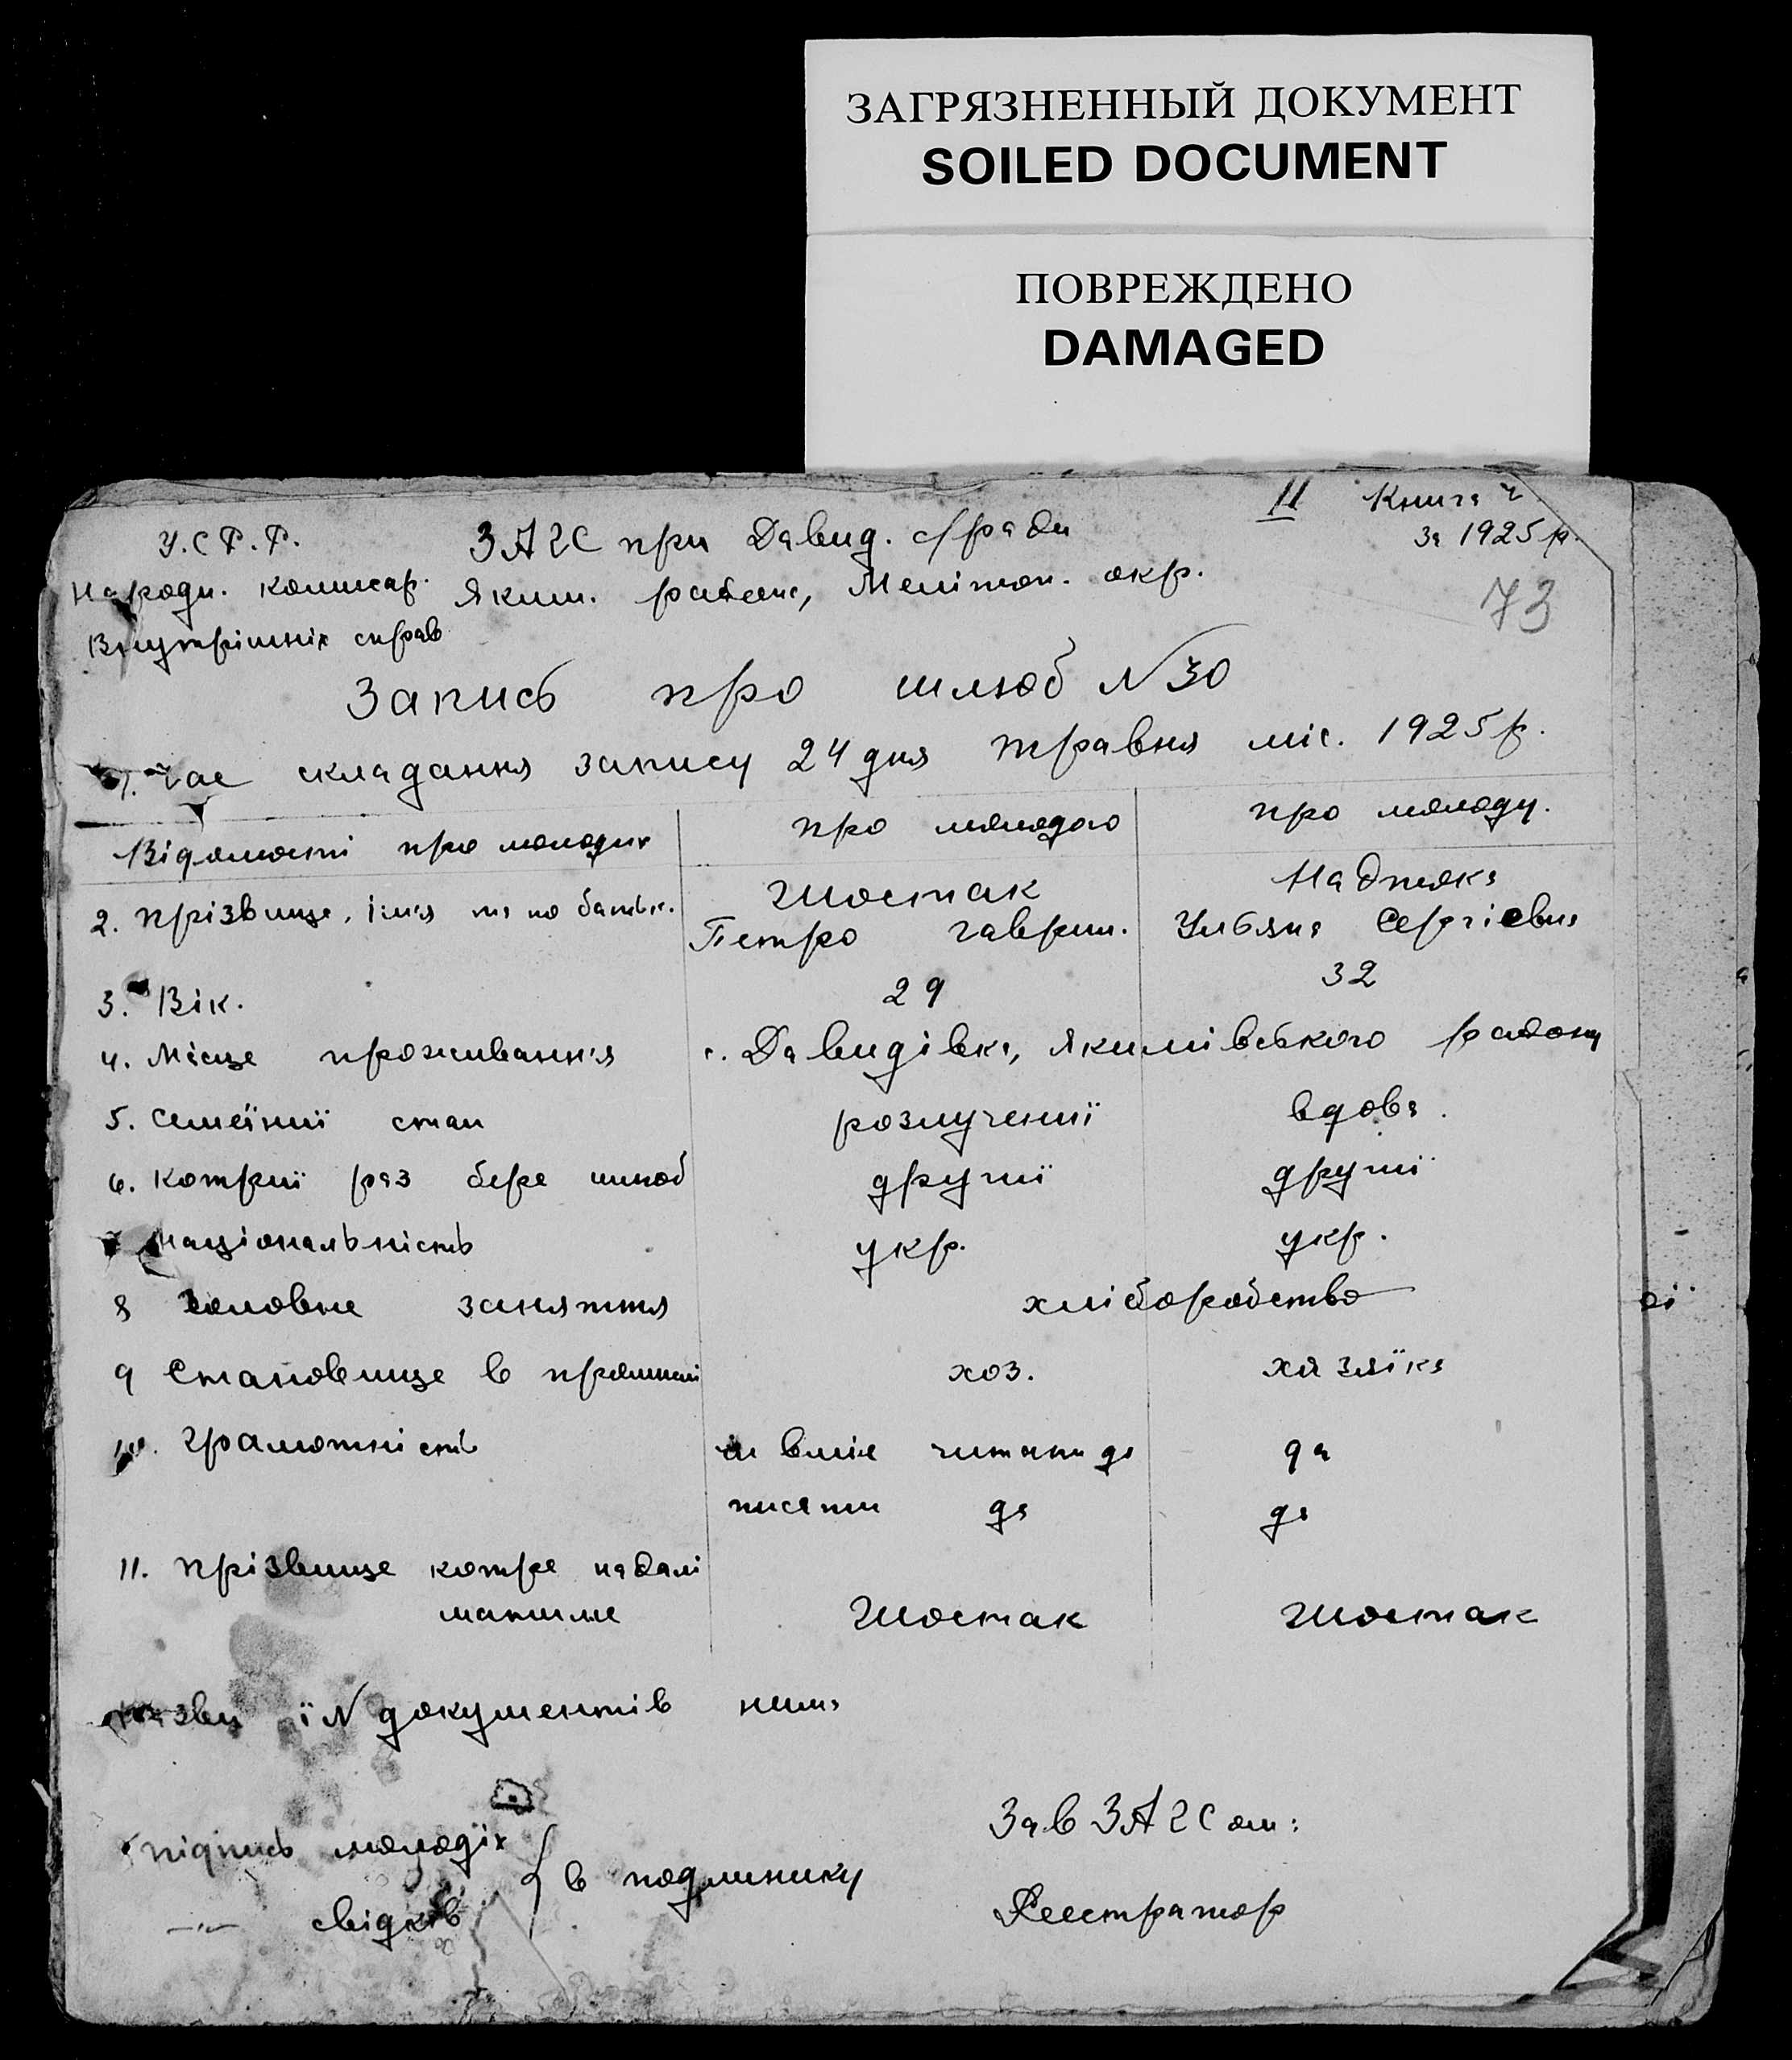 ЗАГРЯЗНЕННЫЙ ДОКУМЕНТ
SOILED DOCUMENT
ПОВРЕЖДЕНО
DAMAGED
II Книга ч
За 1925 р.
73
У.С.Р.Р. ЗАГС при Давид. с/ради
Народн. комисар. Яким. району, Мелітоп. окр.
Внутрішніх справ
Запись про шлюб N 30
1. Час складання запису 24 дня травня міс. 1925 р.
Відомости про молодих про молодого про молоду.
2. прізвище, ім'я та по батьк. Шостак
Петро Гаврил. Сергієвна
3. Вік. 29 32
4. Місце проживання с. Давидівка, Якимівського району
5. Семейний стан розлучений вдова.
6. Котрий раз бере шлюб другий другий
7 Національність укр. укр.
8 Головне заняття хліборобство
9 Становище в промислі хоз. хазяйка
10. Грамотність чи вміє читати да да
писати да да
11. прізвище котре надалі
матиме Шостак Шостак
Назви і N документів нема
підпись молодіх
—"— свідків } в подлинику
Зав ЗАГСом:
Реєстратор